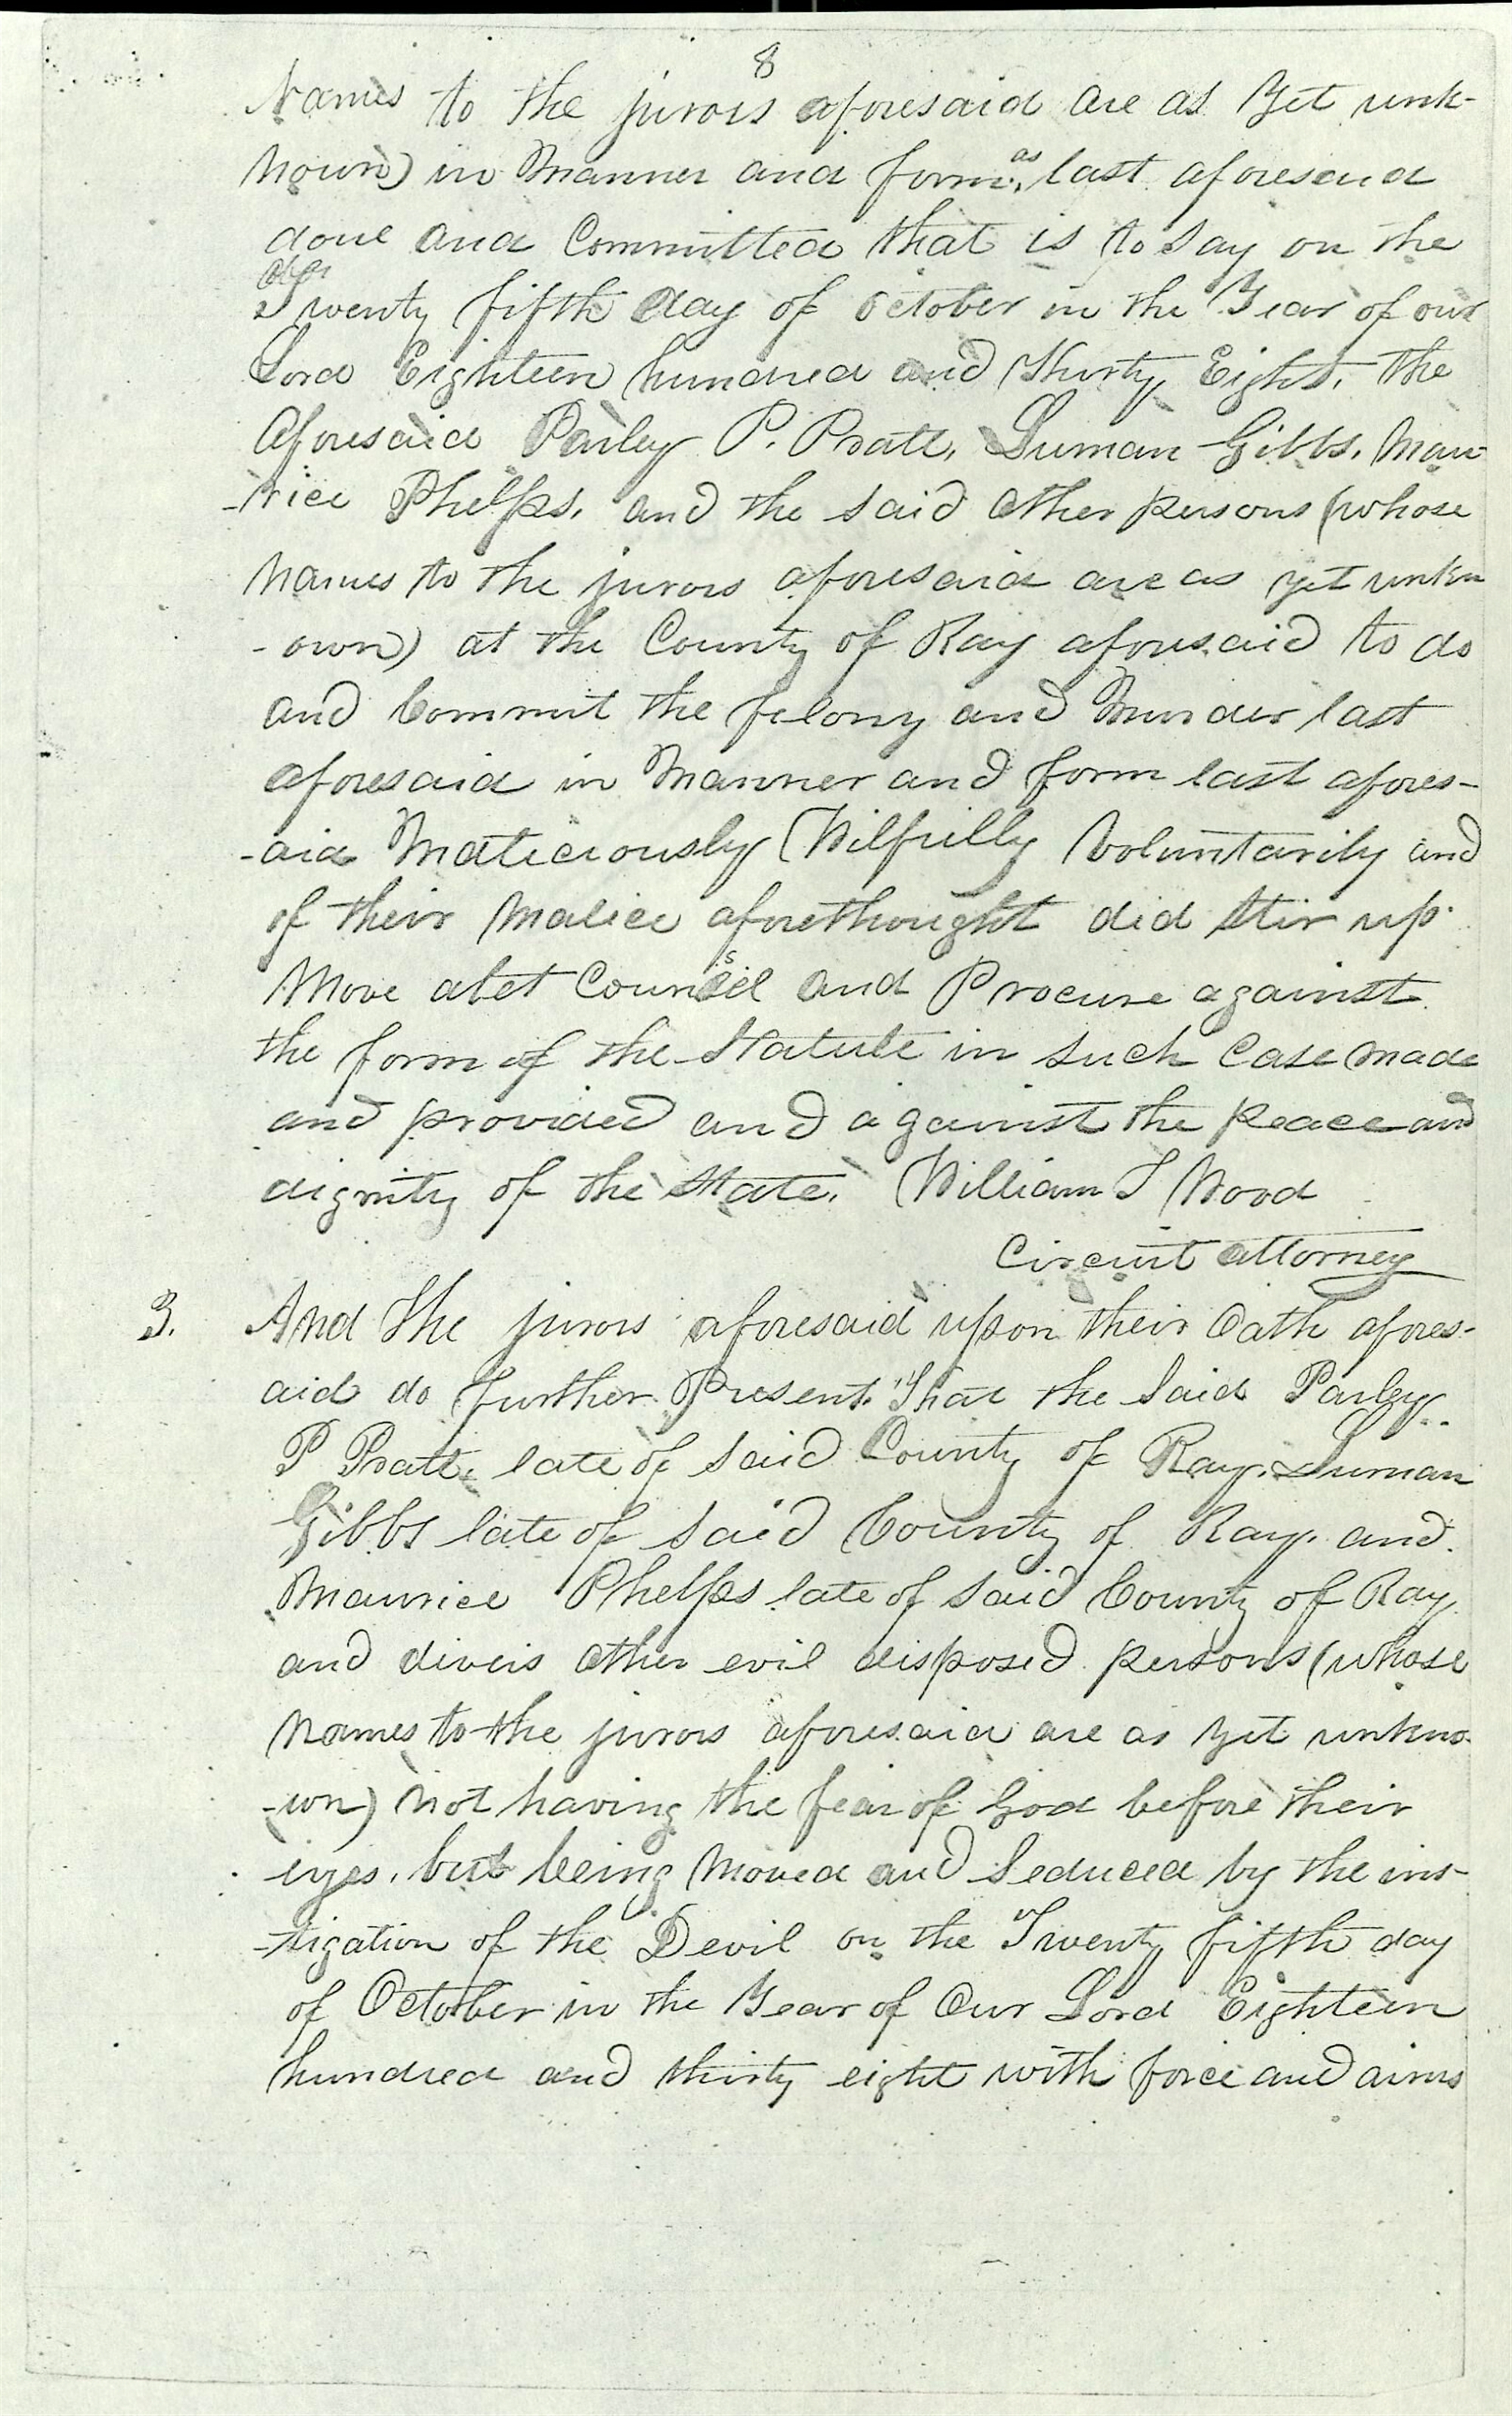 8
Names to the jurors aforesaid are as Yet unk-
nown) in Manner and form as last aforesaid
done and Committed that is to say on the
Twenty fifth day of October in the Year of our
Lord Eighteen hundred and Thirty Eight, the
Aforesaid Parley P. Pratt, Luman Gibbs, Mau-
-rice Phelps, and the said Other persons (whose
Names to the jurors aforesaid are as yet unkn
-own) at the County of Ray aforesaid to do
and Commit the felony and Murder last
aforesaid in Manner and form last afores-
-aid Maliciously Wilfully Voluntarily and
of their Malice aforethought did Stir up
Move abet Counsel and Procure against
the form of the Statute in such Case made
and provided and against the peace and
dignity of the State. William T Wood
Circuit attorney
3. And the jurors aforesaid upon their Oath afores-
aid do further Present, That the Said Parley
P Pratt, late of said County of Ray, Luman
Gibbs late of said County of Ray, and
Maurice Phelps late of said County of Ray
and divers other evil disposed persons (whose
Names to the jurors aforesaid are as yet unkno-
-wn) not having the fear of God before their
eyes, but being Moved and Seduced by the ins-
-tigation of the Devil on the Twenty fifth day
of October in the Year of Our Lord Eighteen
hundred and thirty eight with force and arms